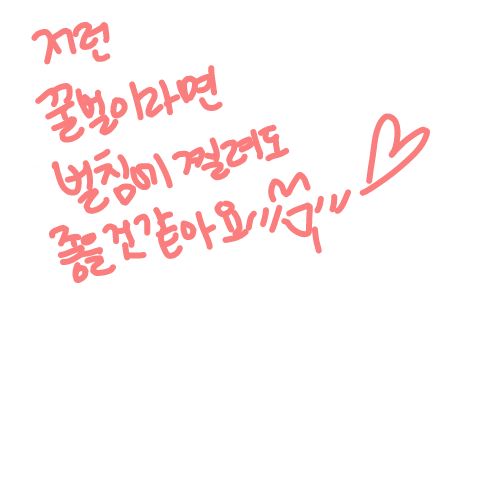 저런
꿀벌이라면
벌침에 찔려도
좋을 것 같아요